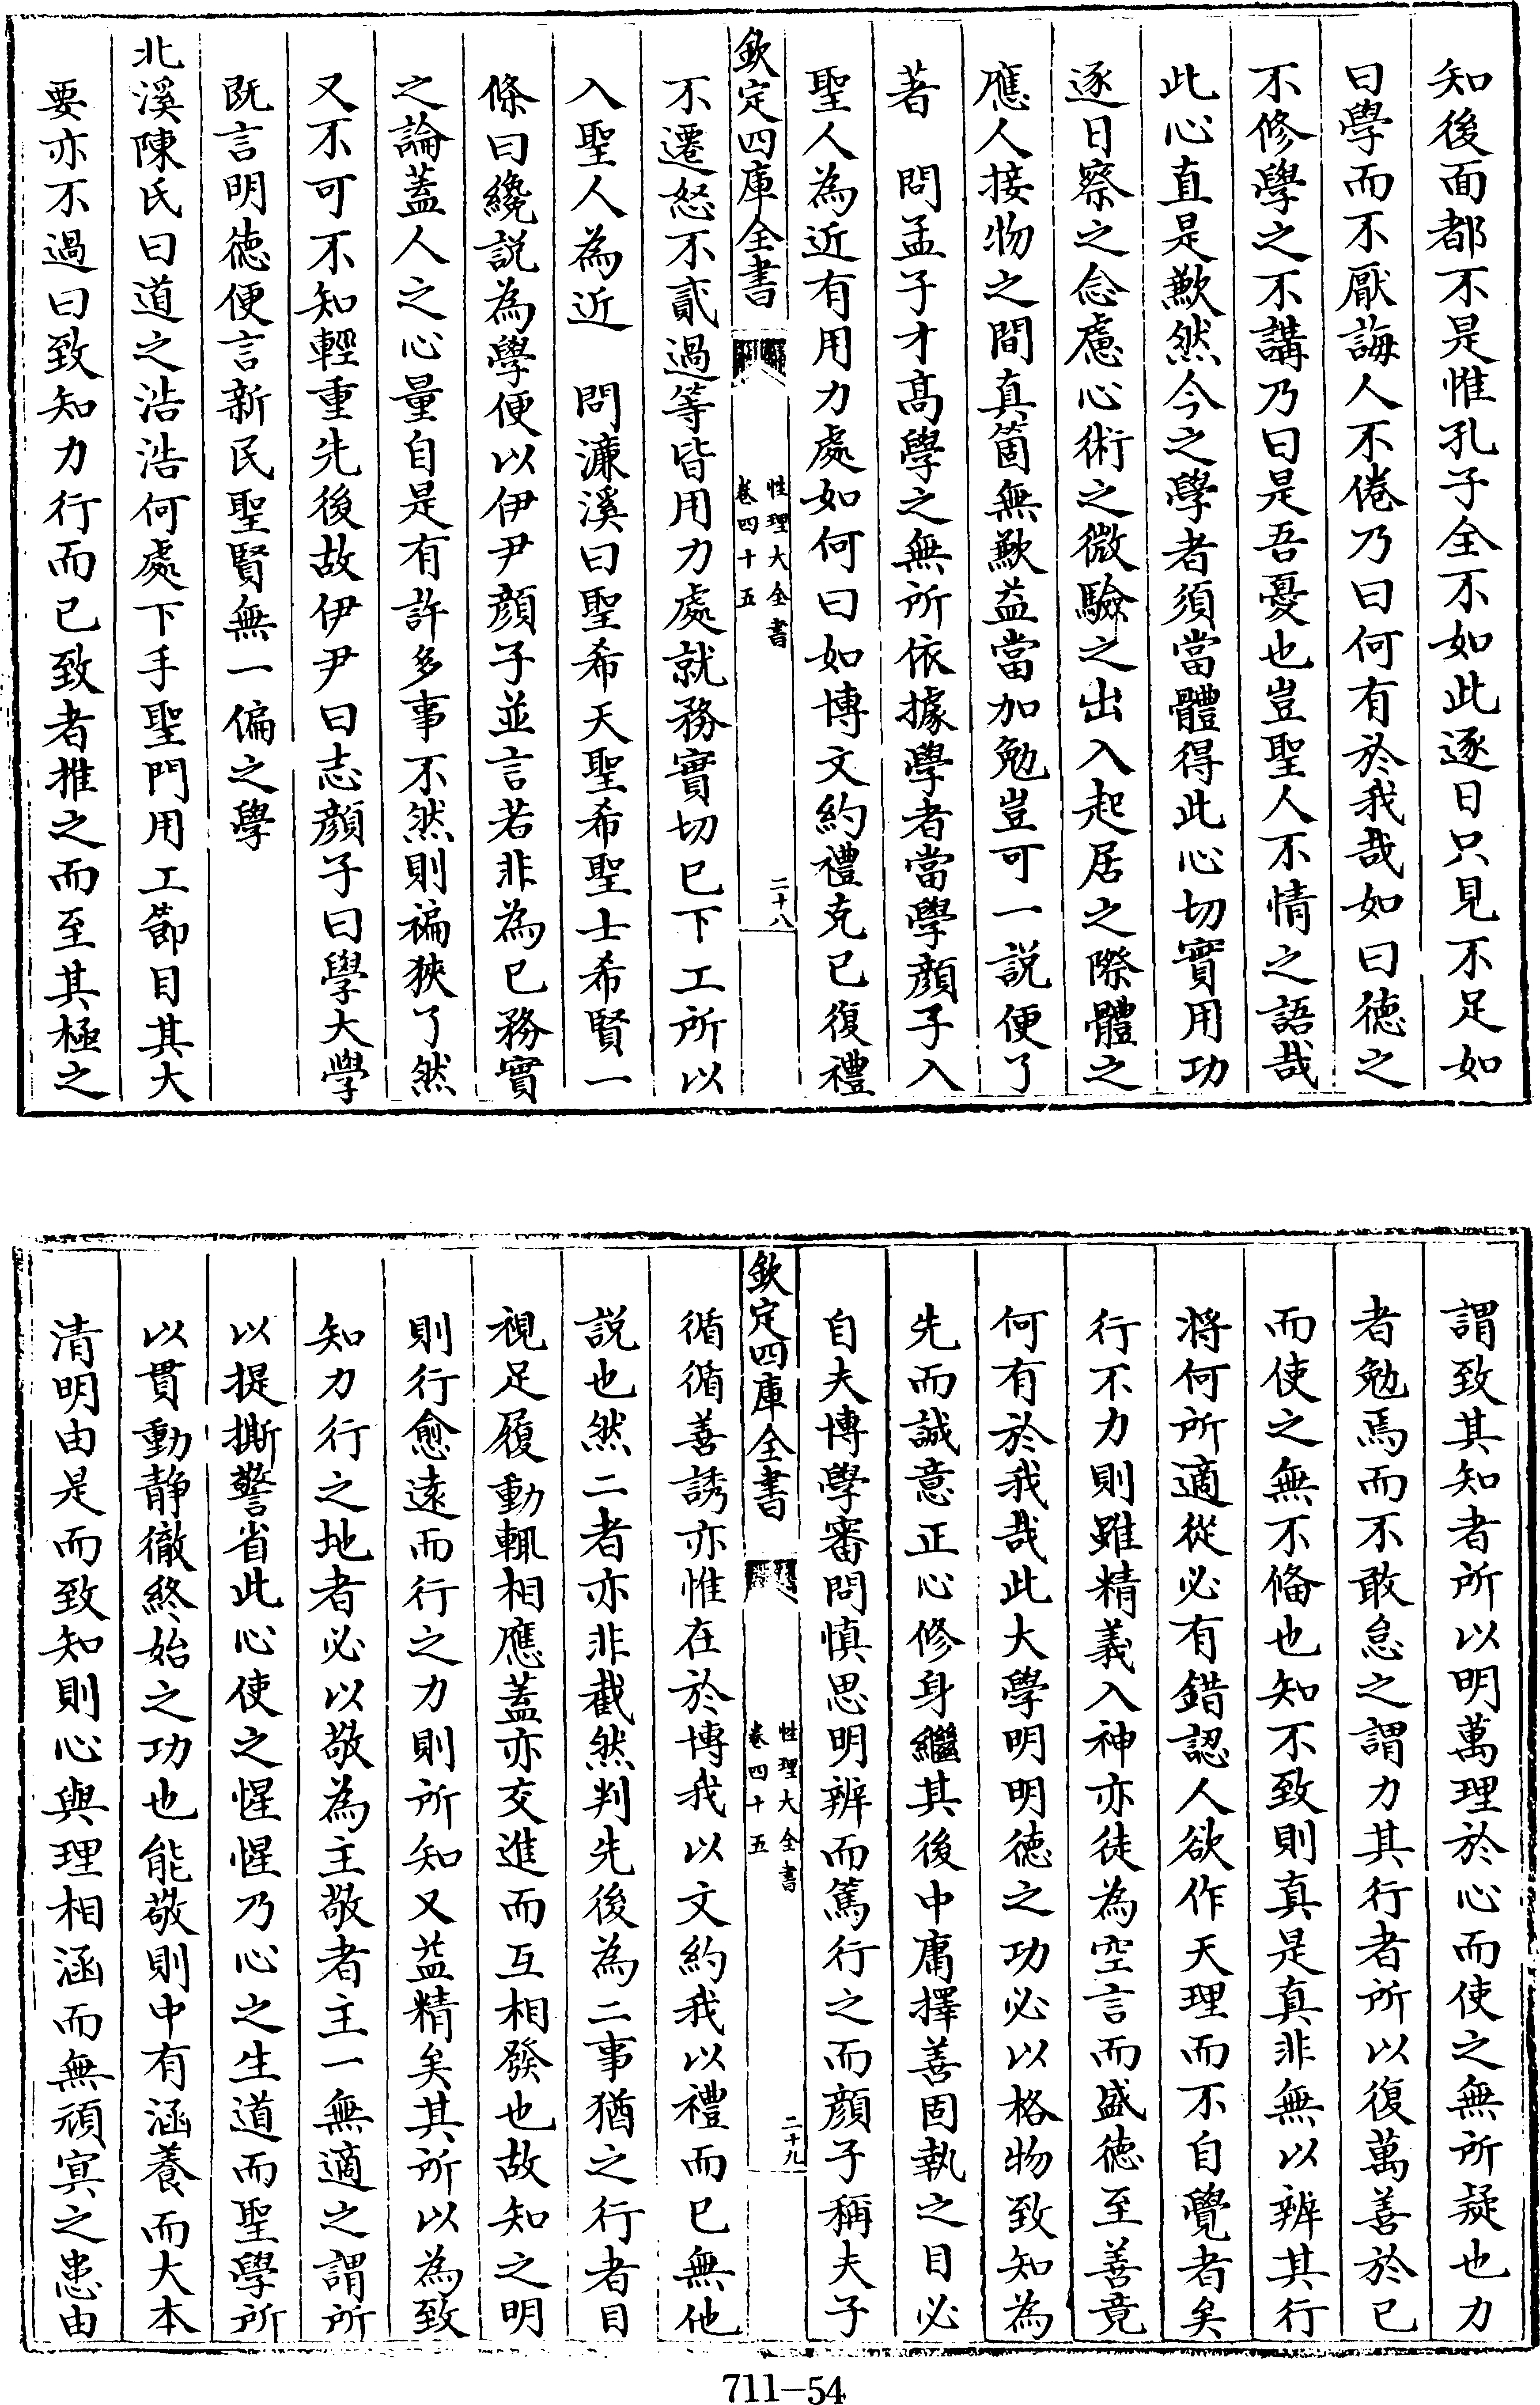 知後面都不是惟孔子全不如此逐日只見不足如
曰學而不厭誨人不倦乃曰何有於我哉如曰徳之
不修學之不講乃曰是吾憂也豈聖人不情之語哉
此心直是歉然今之學者須當體得此心切實用功
逐日察之念慮心術之微驗之出入起居之際體之
應人接物之間真箇無歉益當加勉豈可一説便了
著　問孟子才髙學之無所依據學者當學顔子入
聖人為近有用力處如何曰如博文約禮克已復禮
欽定四庫全書
性理大全書
卷四十五
二十八
不遷怒不貳過等皆用力處就務實切已下工所以
入聖人為近　問濂溪曰聖希天聖希聖士希賢一
條曰纔説為學便以伊尹顔子並言若非為已務實
之論蓋人之心量自是有許多事不然則褊狹了然
又不可不知輕重先後故伊尹曰志顔子曰學大學
既言明徳便言新民聖賢無一偏之學
北溪陳氏曰道之浩浩何處下手聖門用工節目其大
要亦不過曰致知力行而已致者推之而至其極之
謂致其知者所以明萬理於心而使之無所疑也力
者勉焉而不敢怠之謂力其行者所以復萬善於已
而使之無不備也知不致則真是真非無以辨其行
將何所適從必有錯認人欲作天理而不自覺者矣
行不力則雖精義入神亦徒為空言而盛徳至善竟
何有於我哉此大學明明徳之功必以格物致知為
先而誠意正心修身繼其後中庸擇善固執之目必
自夫博學審問慎思明辨而篤行之而顔子稱夫子
欽定四庫全書
性理大全書
卷四十五
二十九
循循善誘亦惟在於博我以文約我以禮而已無他
説也然二者亦非截然判先後為二事猶之行者目
視足履動輒相應蓋亦交進而互相發也故知之明
則行愈逺而行之力則所知又益精矣其所以為致
知力行之地者必以敬為主敬者主一無適之謂所
以提撕警省此心使之惺惺乃心之生道而聖學所
以貫動静徹終始之功也能敬則中有涵養而大本
清明由是而致知則心與理相涵而無頑㝠之患由
711—54